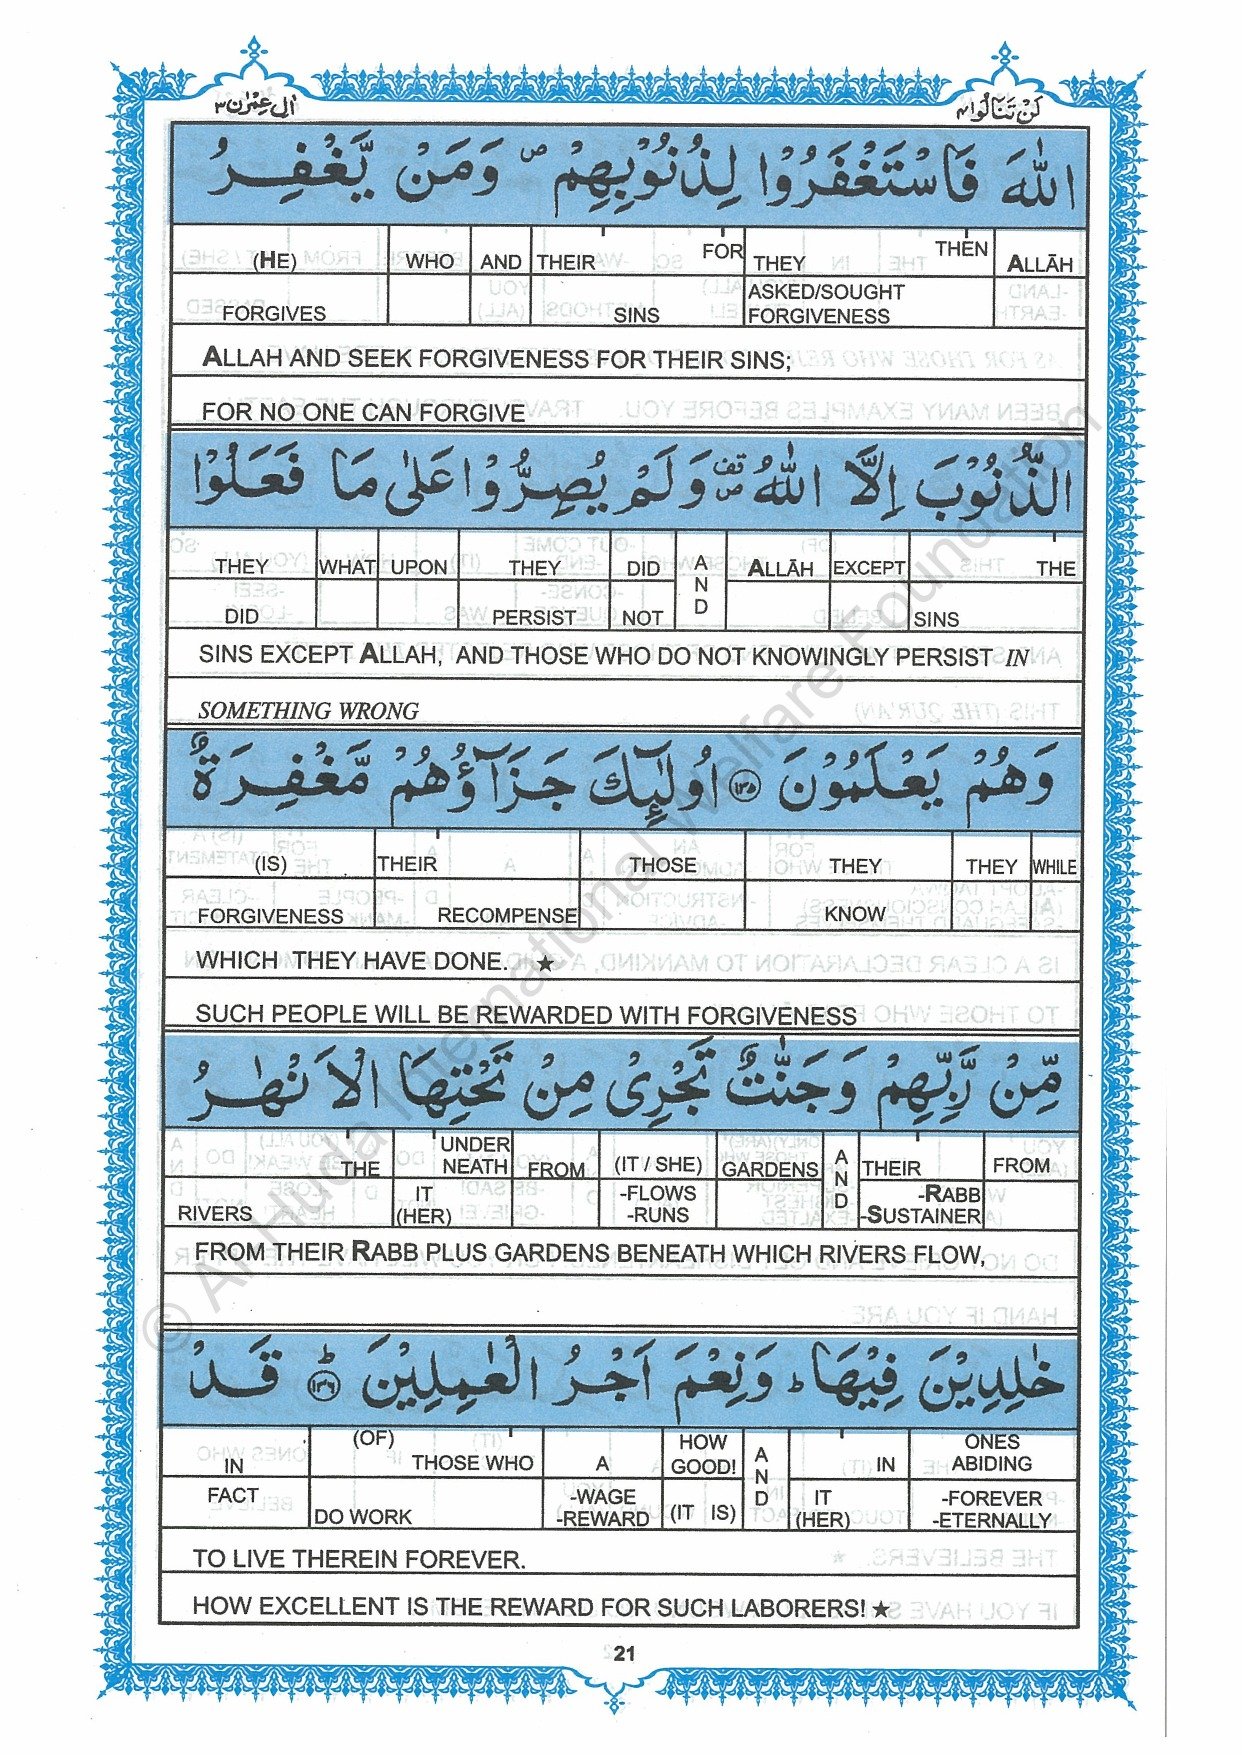 اٰل عِمْرٰن ٣
لَنْ تَنَالُوا ٤
اللّٰهَ فَاسْتَغْفَرُوْا لِذُنُوْبِهِمْ ۪ وَمَنْ يَّغْفِرُ
(HE) WHO AND THEIR FOR THEY THEN ALLĀH
FORGIVES SINS ASKED/SOUGHT FORGIVENESS
ALLAH AND SEEK FORGIVENESS FOR THEIR SINS;
FOR NO ONE CAN FORGIVE
الذُّنُوْبَ اِلَّا اللّٰهُ ۪ وَلَمْ يُصِرُّوْا عَلٰى مَا فَعَلُوْا
THEY WHAT UPON THEY DID AND ALLĀH EXCEPT THE
DID PERSIST NOT SINS
SINS EXCEPT ALLAH, AND THOSE WHO DO NOT KNOWINGLY PERSIST IN
SOMETHING WRONG
وَهُمْ يَعْلَمُوْنَ ۝١٣٥ اُولٰٓئِكَ جَزَآؤُهُمْ مَّغْفِرَةٌ
(IS) THEIR THOSE THEY THEY WHILE
FORGIVENESS RECOMPENSE KNOW
WHICH THEY HAVE DONE. ★
SUCH PEOPLE WILL BE REWARDED WITH FORGIVENESS
مِّنْ رَّبِّهِمْ وَجَنّٰتٌ تَجْرِىْ مِنْ تَحْتِهَا الْاَنْهٰرُ
THE UNDER NEATH FROM (IT / SHE) GARDENS AND THEIR FROM
RIVERS IT (HER) -FLOWS -RUNS -RABB -SUSTAINER
FROM THEIR RABB PLUS GARDENS BENEATH WHICH RIVERS FLOW,
خٰلِدِيْنَ فِيْهَا ؕ وَنِعْمَ اَجْرُ الْعٰمِلِيْنَ ؕ۝١٣٦ قَدْ
IN (OF) THOSE WHO A HOW GOOD! AND IN ONES ABIDING
FACT DO WORK -WAGE -REWARD (IT IS) IT (HER) -FOREVER -ETERNALLY
TO LIVE THEREIN FOREVER.
HOW EXCELLENT IS THE REWARD FOR SUCH LABORERS! ★
21